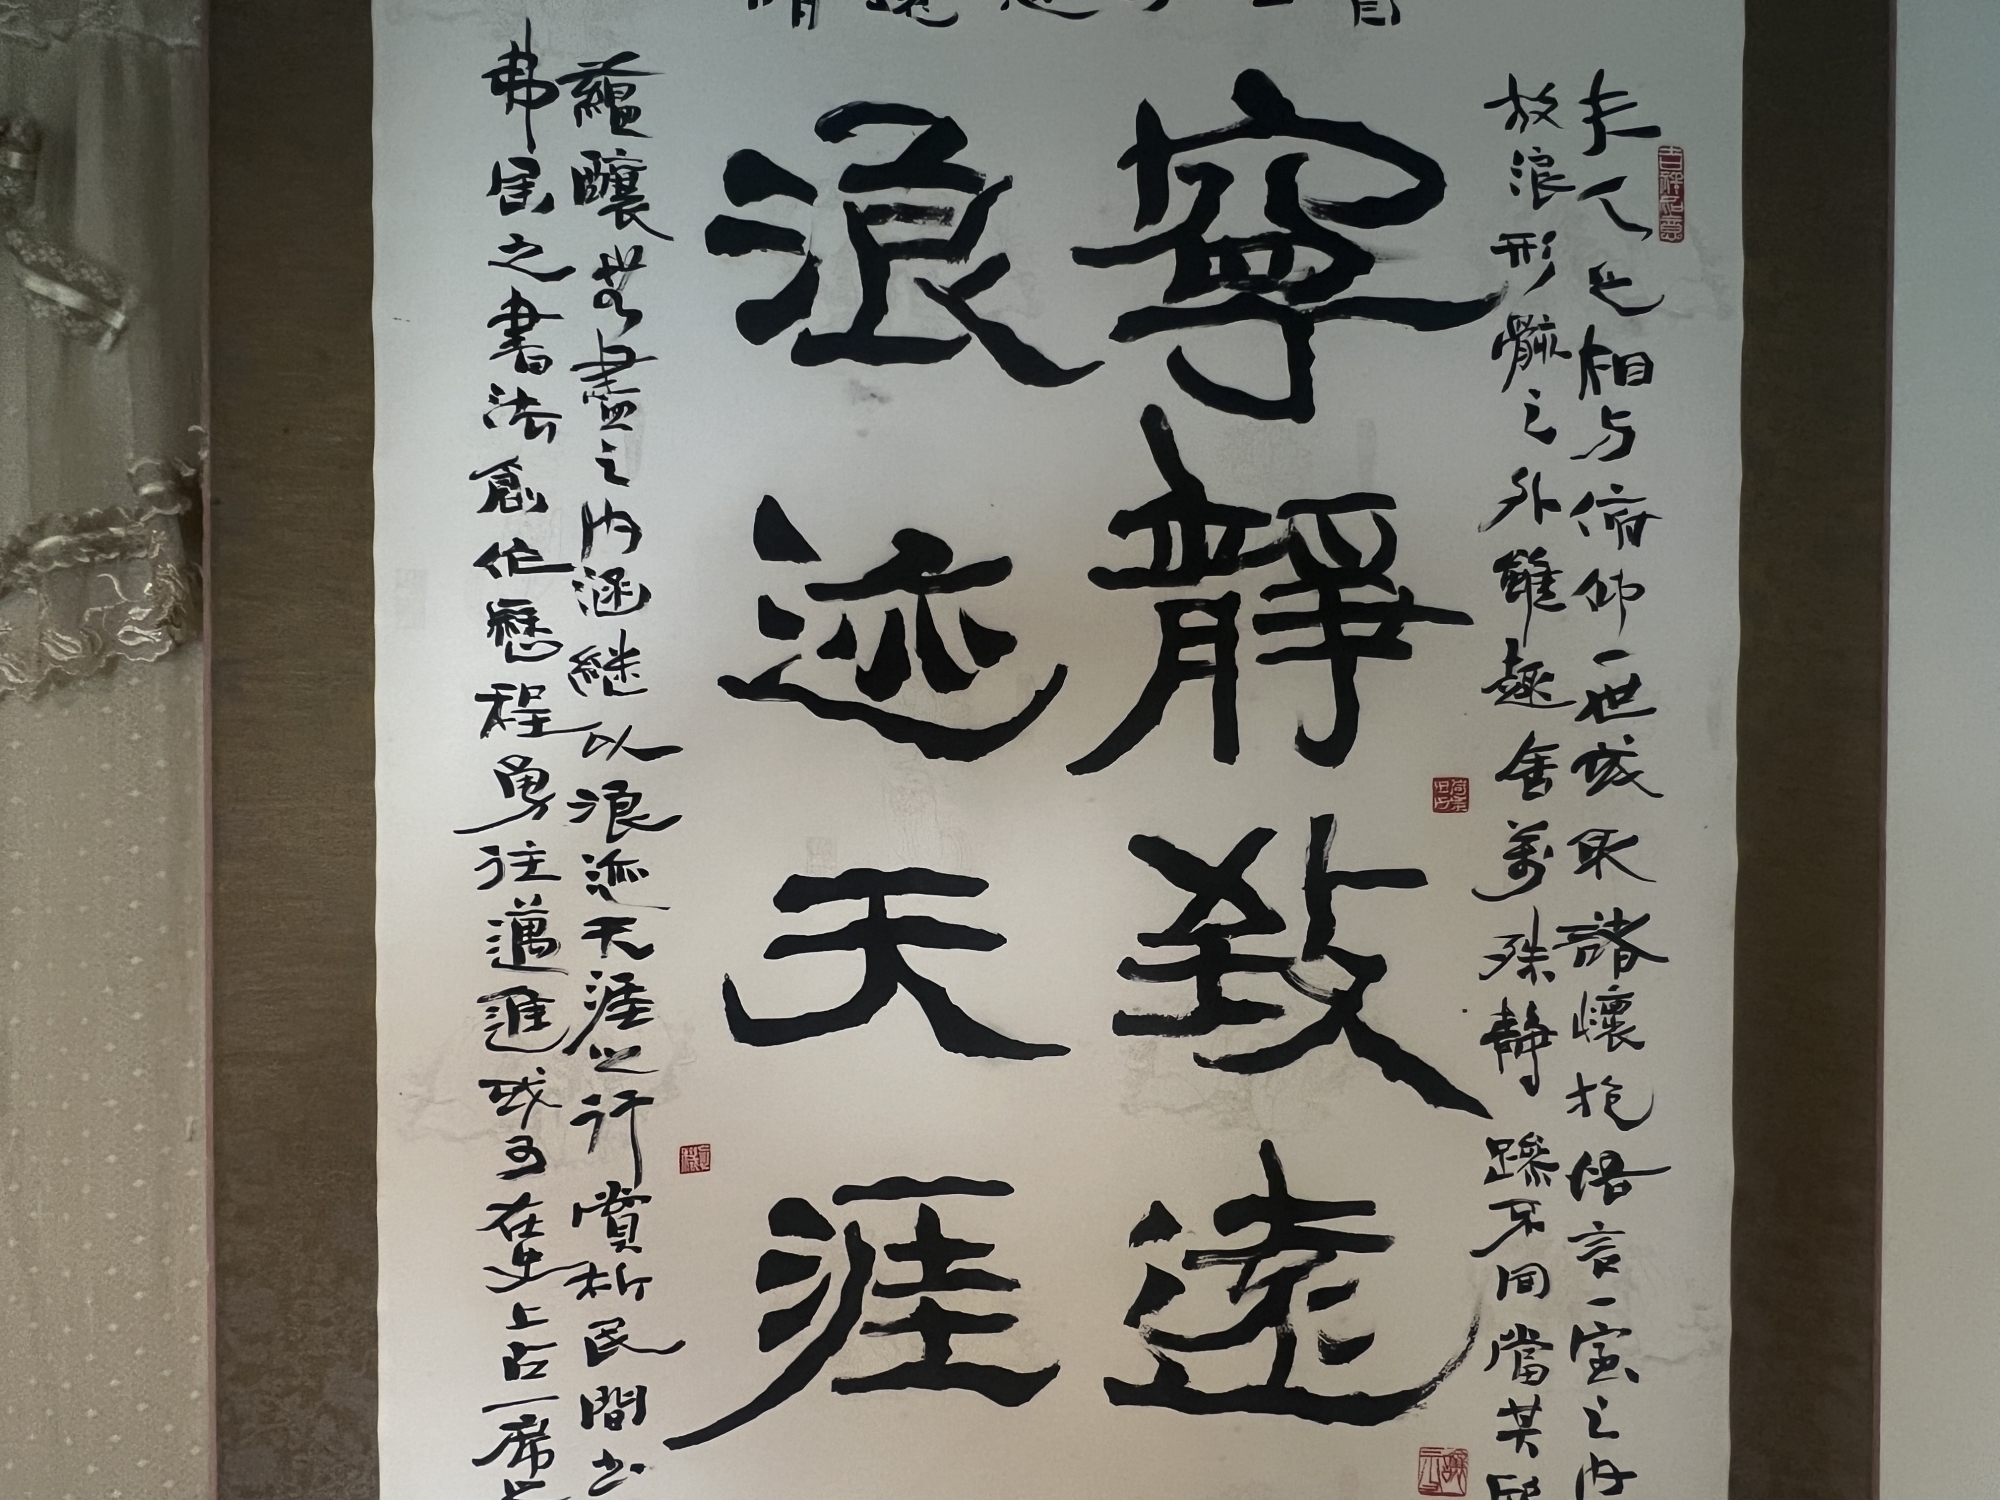 夫人之相与俯仰一世或取諸懷抱悟言一室之内
放浪形骸之外雖趣舍萬殊静躁不同當其
寧靜致遠
浪迹天涯
蘊釀無盡之内涵繼以浪迹天涯之行賞析民間书
弗居之書法創作歷程勇往邁進或可在史上占一席之
吉祥如意